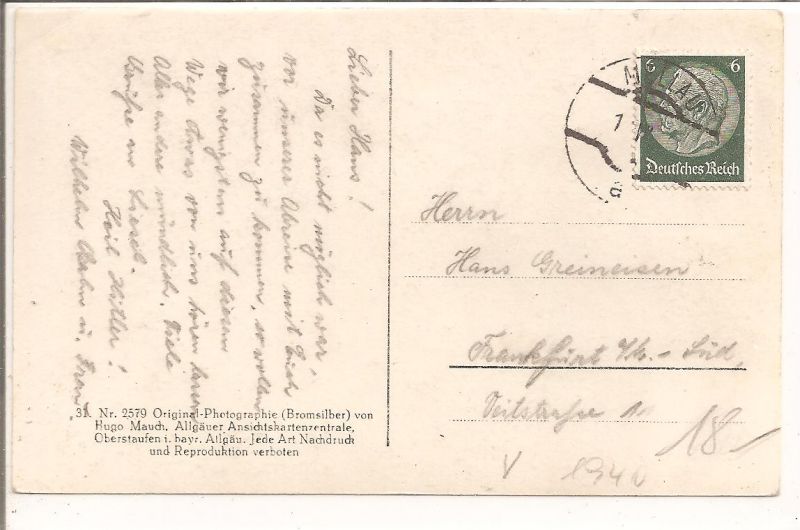 Lieber Hans!
Da es nicht möglich war,
vor unserer Abreise mit Euch
zusammen zu kommen, so wollen
wir wenigstens auf diesem
Wege etwas von uns hören lassen
Alles andere mündlich. Viele
Grüße an Liesel.
Heil Hitler!
Wilhelm u. Frau
31 Nr. 2579 Original-Photographie (Bromsilber) von
Hugo Mauch, Allgäuer Ansichtskartenzentrale,
Oberstaufen i. bayr. Allgäu. Jede Art Nachdruck
und Reproduktion verboten
6 6
Deutsches Reich
Herrn
Hans Greineisen
Frankfurt a/M.-Süd,
Veitstraße 11
18